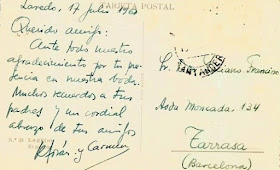 TARJETA POSTAL
Laredo, 17 julio 196
Querido amigo:
Ante todo nuestro
agradecimiento por tu pre
sencia en nuestra boda.
Muchos recuerdos a tus
padres y un cordial
abrazo de tus amigos
y Carmen
SANTANDER
Sr. Francino
Avda Moncada, 134
Tarrasa
(Barcelona)